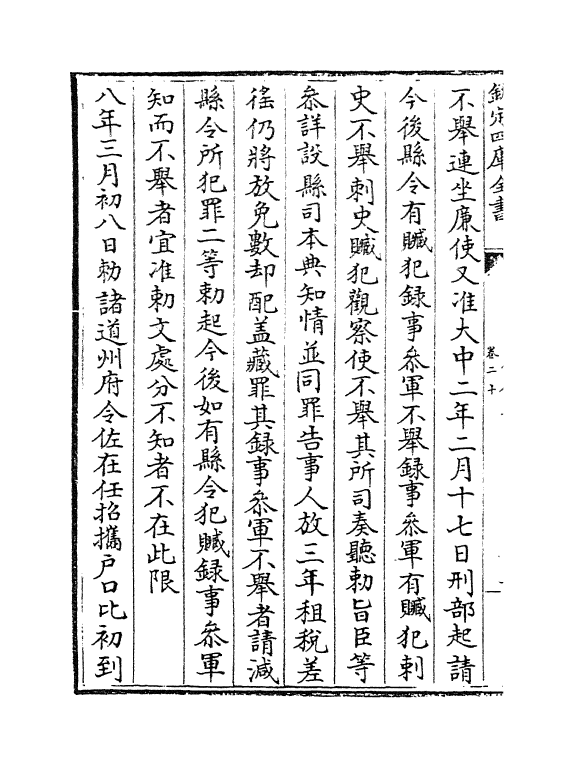 欽定四庫全書
卷二十
不舉連坐廉使又准大中二年二月十七日刑部起請
今後縣令有贓犯録事叅軍不舉録事叅軍有贓犯刺
史不舉刺史贓犯觀察使不舉其所司奏聽勅旨臣等
叅詳設縣司本典知情並同罪告事人放三年租税差
徭仍將放免數却配盖藏罪其録事叅軍不舉者請減
縣令所犯罪二等勅起今後如有縣令犯贓録事叅軍
知而不舉者宜准勅文處分不知者不在此限
八年三月初八日勅諸道州府令佐在任招攜户口比初到